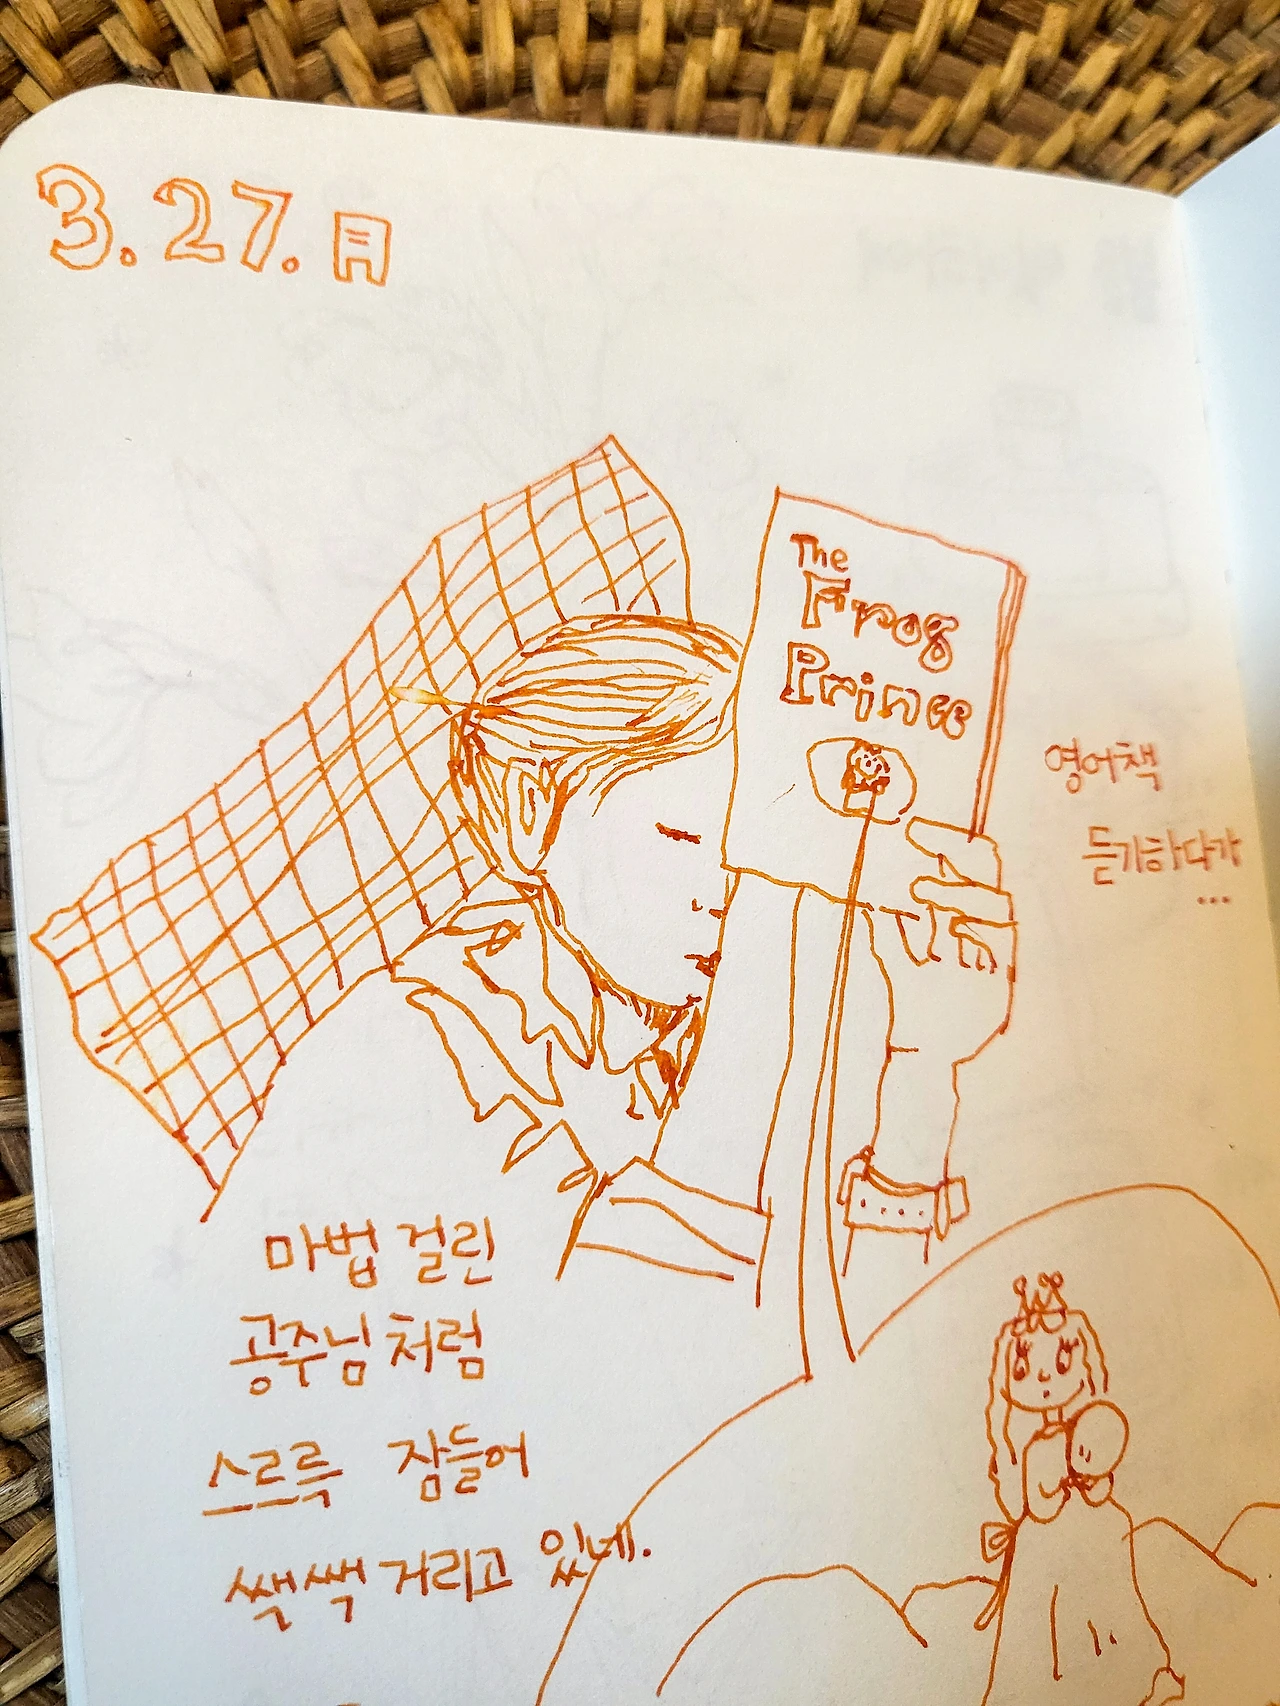 3. 27. 月
The
Frog
Prince
영어책
듣기하다가
...
마법 걸린
공주님처럼
스르륵 잠들어
쌕쌕거리고 있네.